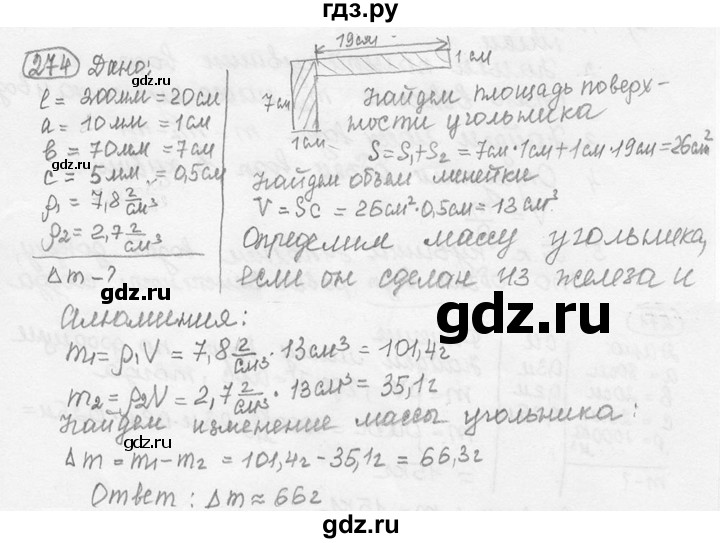 гдз.ру
274 Дано:
l = 200мм = 20см
a = 10мм = 1см
в = 70мм = 7см
c = 5мм = 0,5см
ρ1 = 7,8 г/см³
ρ2 = 2,7 г/см³
Δm - ?
19см
1см
7см
1см
Найдем площадь поверх-
ности угольника
S = S1 + S2 = 7см·1см + 1см·19см = 26см²
Найдем объем линейки
V = Sc = 26см²·0,5см = 13см³
Определим массу угольника,
если он сделан из железа и
алюминия:
m1 = ρ1V = 7,8 г/см³ · 13см³ = 101,4г
m2 = ρ2V = 2,7 г/см³ · 13см³ = 35,1г
Найдем изменение массы угольника:
Δm = m1 - m2 = 101,4г - 35,1г = 66,3г
Ответ: Δm ≈ 66г
gdz.ru
gdz.ru
gdz.ru
gdz.ru
gdz.ru
gdz.ru
gdz.ru